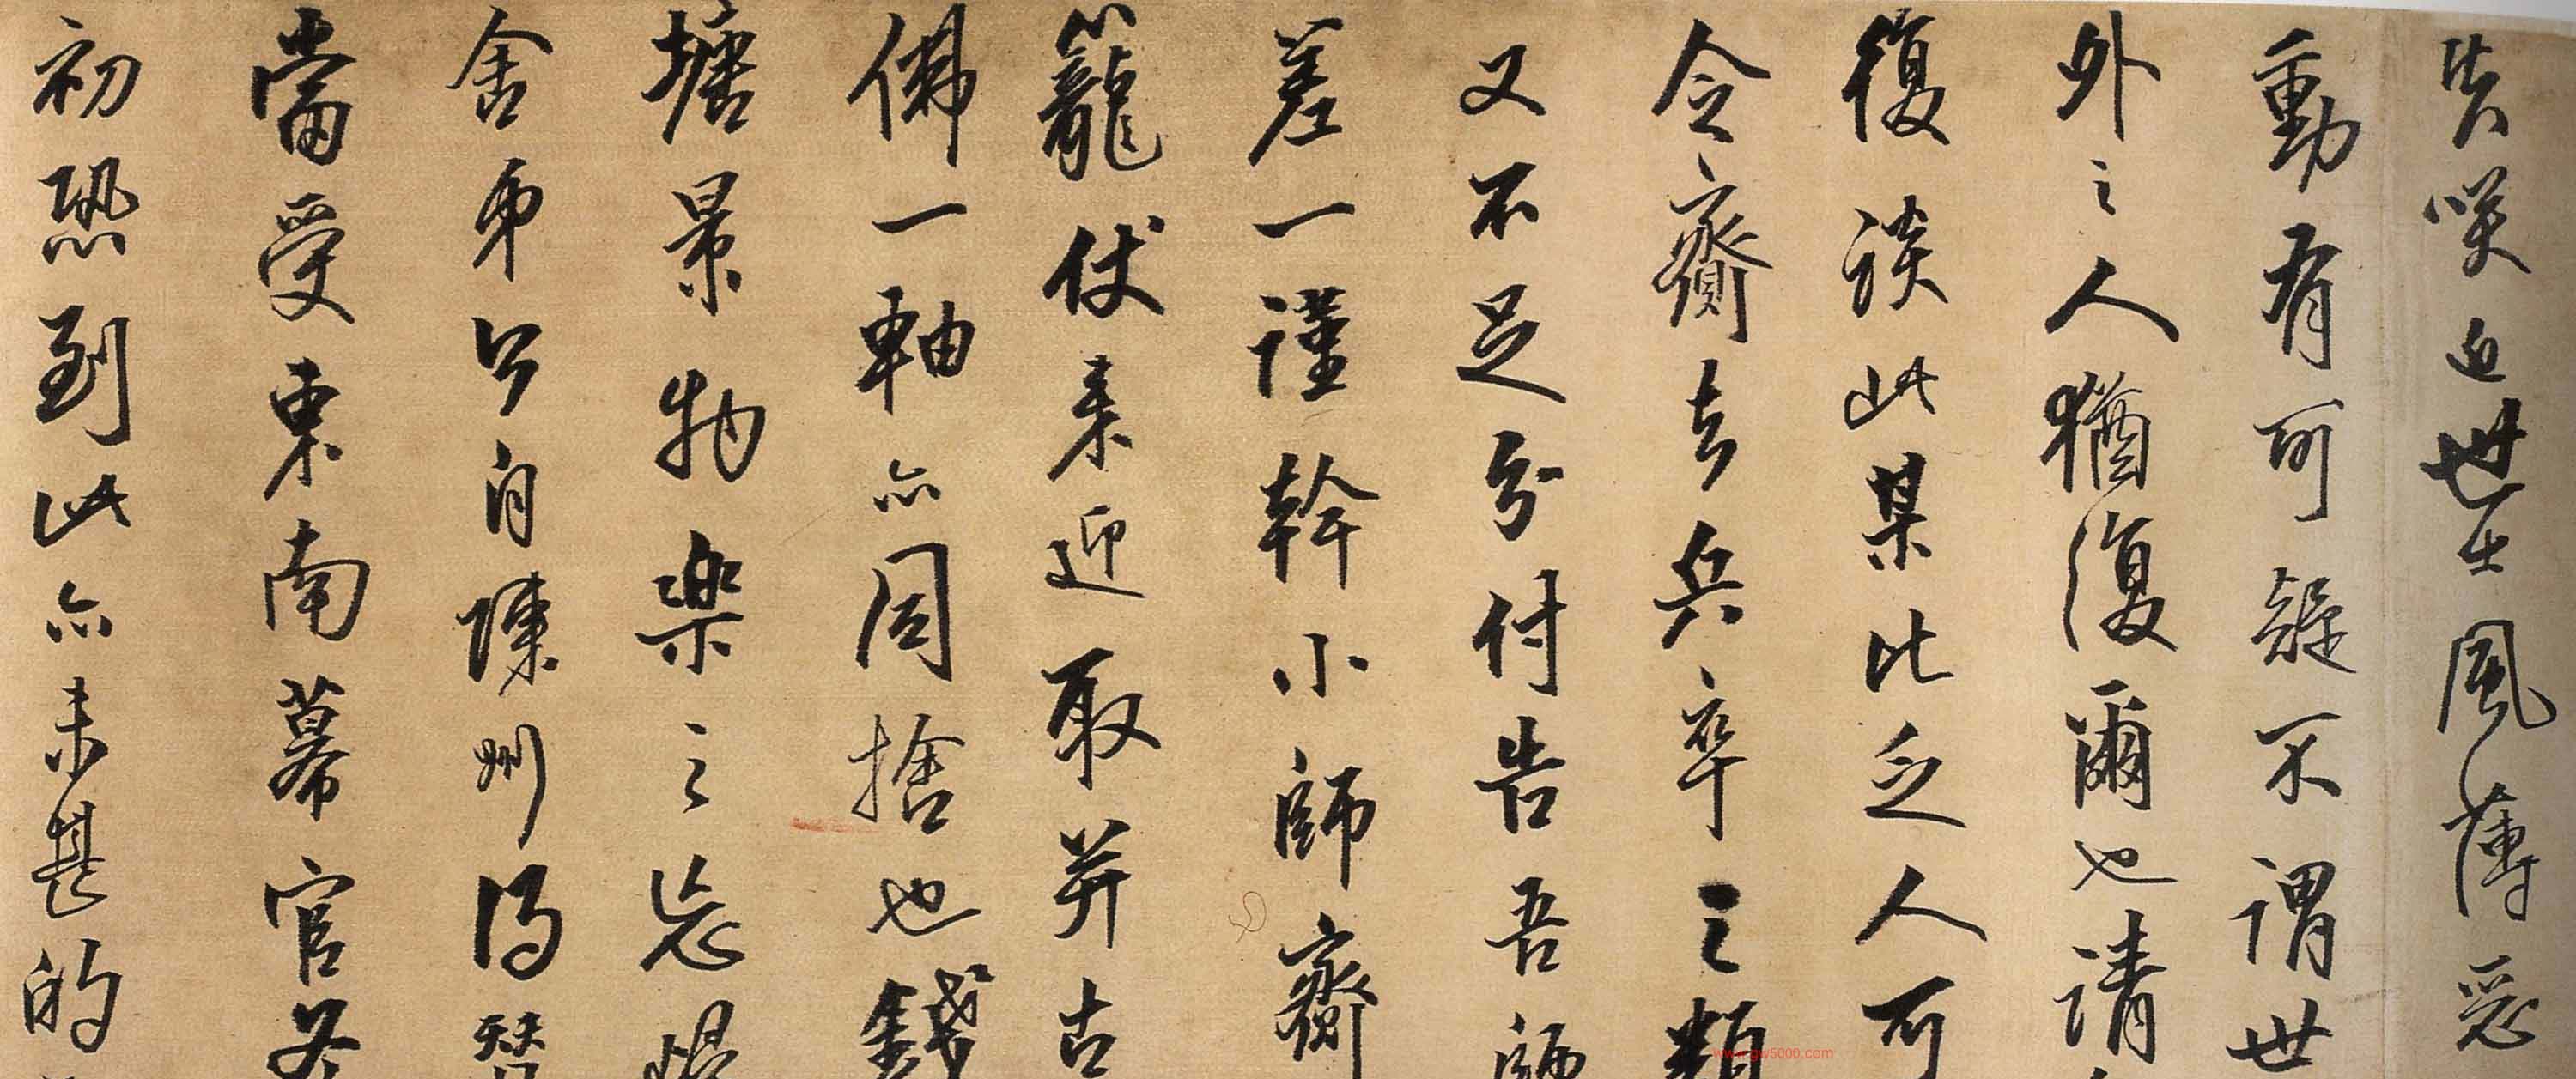 失咲近世士風薄惡
動有可疑不謂世
外之人猶復爾也請
復談此某比乏人可
令齎去兵卒之類
又不足分付告吾師
差一謹幹小師齎
籠仗來迎取并古
佛一軸亦同捨也錢
塘景物樂之忘歸
舍弟今自陳州得替
當受東南幕官冬
初恐到此亦未甚的
www.gw5000.com